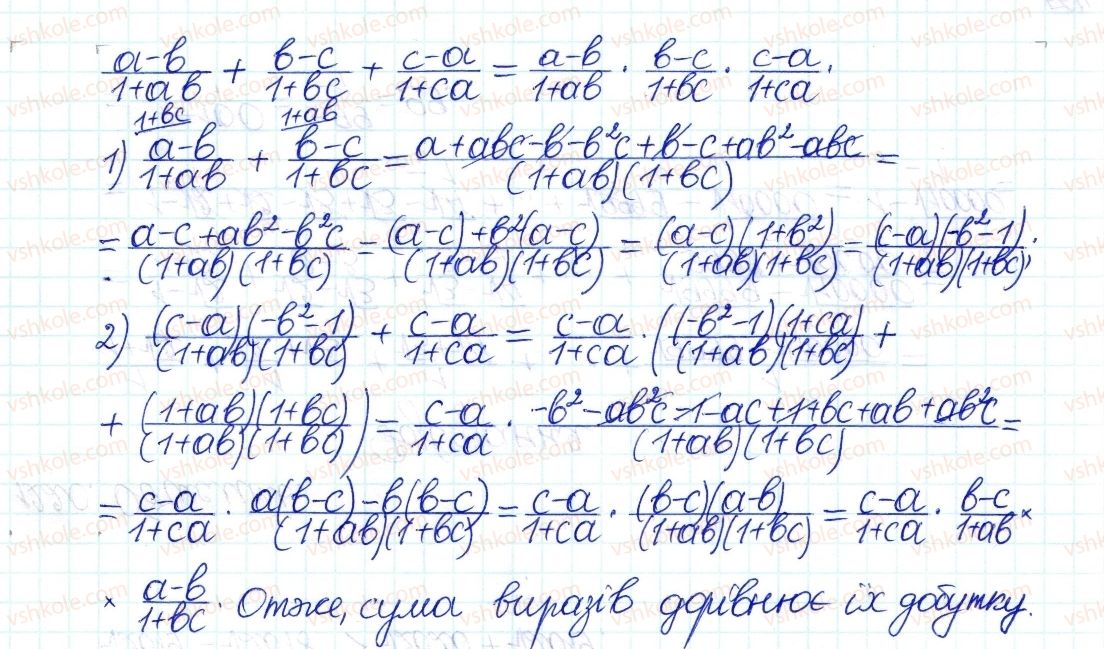 (a-b)/(1+ab) + (b-c)/(1+bc) + (c-a)/(1+ca) = (a-b)/(1+ab) · (b-c)/(1+bc) · (c-a)/(1+ca).
1+bc 1+ab
1) (a-b)/(1+ab) + (b-c)/(1+bc) = (a+abc-b-b²c+b-c+ab²-abc)/((1+ab)(1+bc)) =
= (a-c+ab²-b²c)/((1+ab)(1+bc)) = ((a-c)+b²(a-c))/((1+ab)(1+bc)) = ((a-c)(1+b²))/((1+ab)(1+bc)) = ((c-a)(-b²-1))/((1+ab)(1+bc));
2) ((c-a)(-b²-1))/((1+ab)(1+bc)) + (c-a)/(1+ca) = (c-a)/(1+ca) · (((-b²-1)(1+ca))/((1+ab)(1+bc)) +
+ ((1+ab)(1+bc))/((1+ab)(1+bc))) = (c-a)/(1+ca) · (-b²-ab²c-1-ac+1+bc+ab+ab²c)/((1+ab)(1+bc)) =
= (c-a)/(1+ca) · (a(b-c)-b(b-c))/((1+ab)(1+bc)) = (c-a)/(1+ca) · ((b-c)(a-b))/((1+ab)(1+bc)) = (c-a)/(1+ca) · (b-c)/(1+ab) ×
× (a-b)/(1+bc). Отже, сума виразів дорівнює їх добутку.
vshkole.com